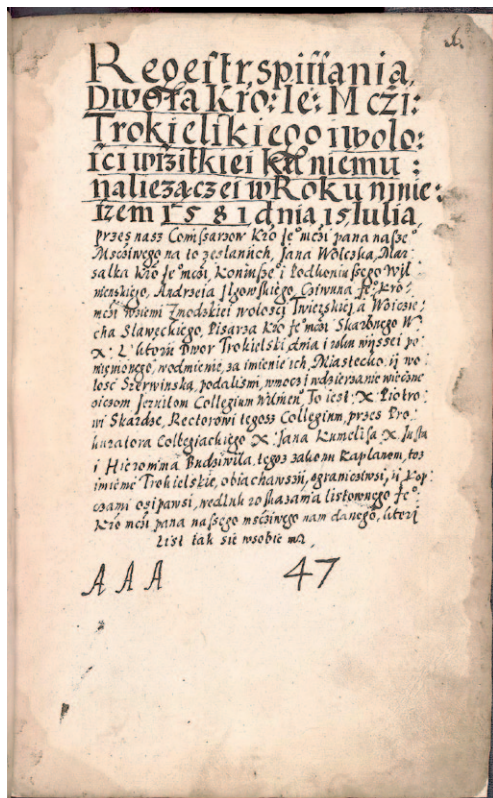 Regestr spissania
Dwora Kro: Je: M czi:
Trokielskiego i wolo:
sci wszitkiei k niemu :
naliezaczei w Roku ninie:
szem 1581 dnia 15 Julia
przes nasz Comissarzow Kro Je° mczi pana nasze°
Msciwego na to zeslanich, Jana Wolczka, Mar
salka Kro Je° mczi, Koniusze° i Podkoniuszego Wil
nienskiego, Andrzeia Ilgowskiego, Cziwuna Je° Kro=
mczi w ziemi Zmodzkiei wolosci Twierskiej, a Woicie:
cha Slaweckiego, Pisarza Kro Je° mczi Skarbnego W
X: L: ktori Dwor Trokielski dnia i roku wyssei po
mienionego, w odmienie, za imienie ich, Miastecko, ij wo
losc Szerwinska, podalismi, w moc ij w dzierzanie wieczne
oiczom Jezuitom Collegium Wilnen° To iest: X: Piotro
wi Skardze, Rectorowi tegosz Collegium, przes Pro
kuratora Collegiackiego X: Jana Kunelisa X. Justa
i Hieronima Budziwila, tegoz zakonu Kaplanow, tos
imienie Trokielskie, obiachawszi, ogranicziwsi, ij Kop
czami osipawsi, wedluk roskazania listownego Je°
Kro mczi pana nassego msciwego nam danego, ktori
List tak sie w sobie ma,
A A A 47